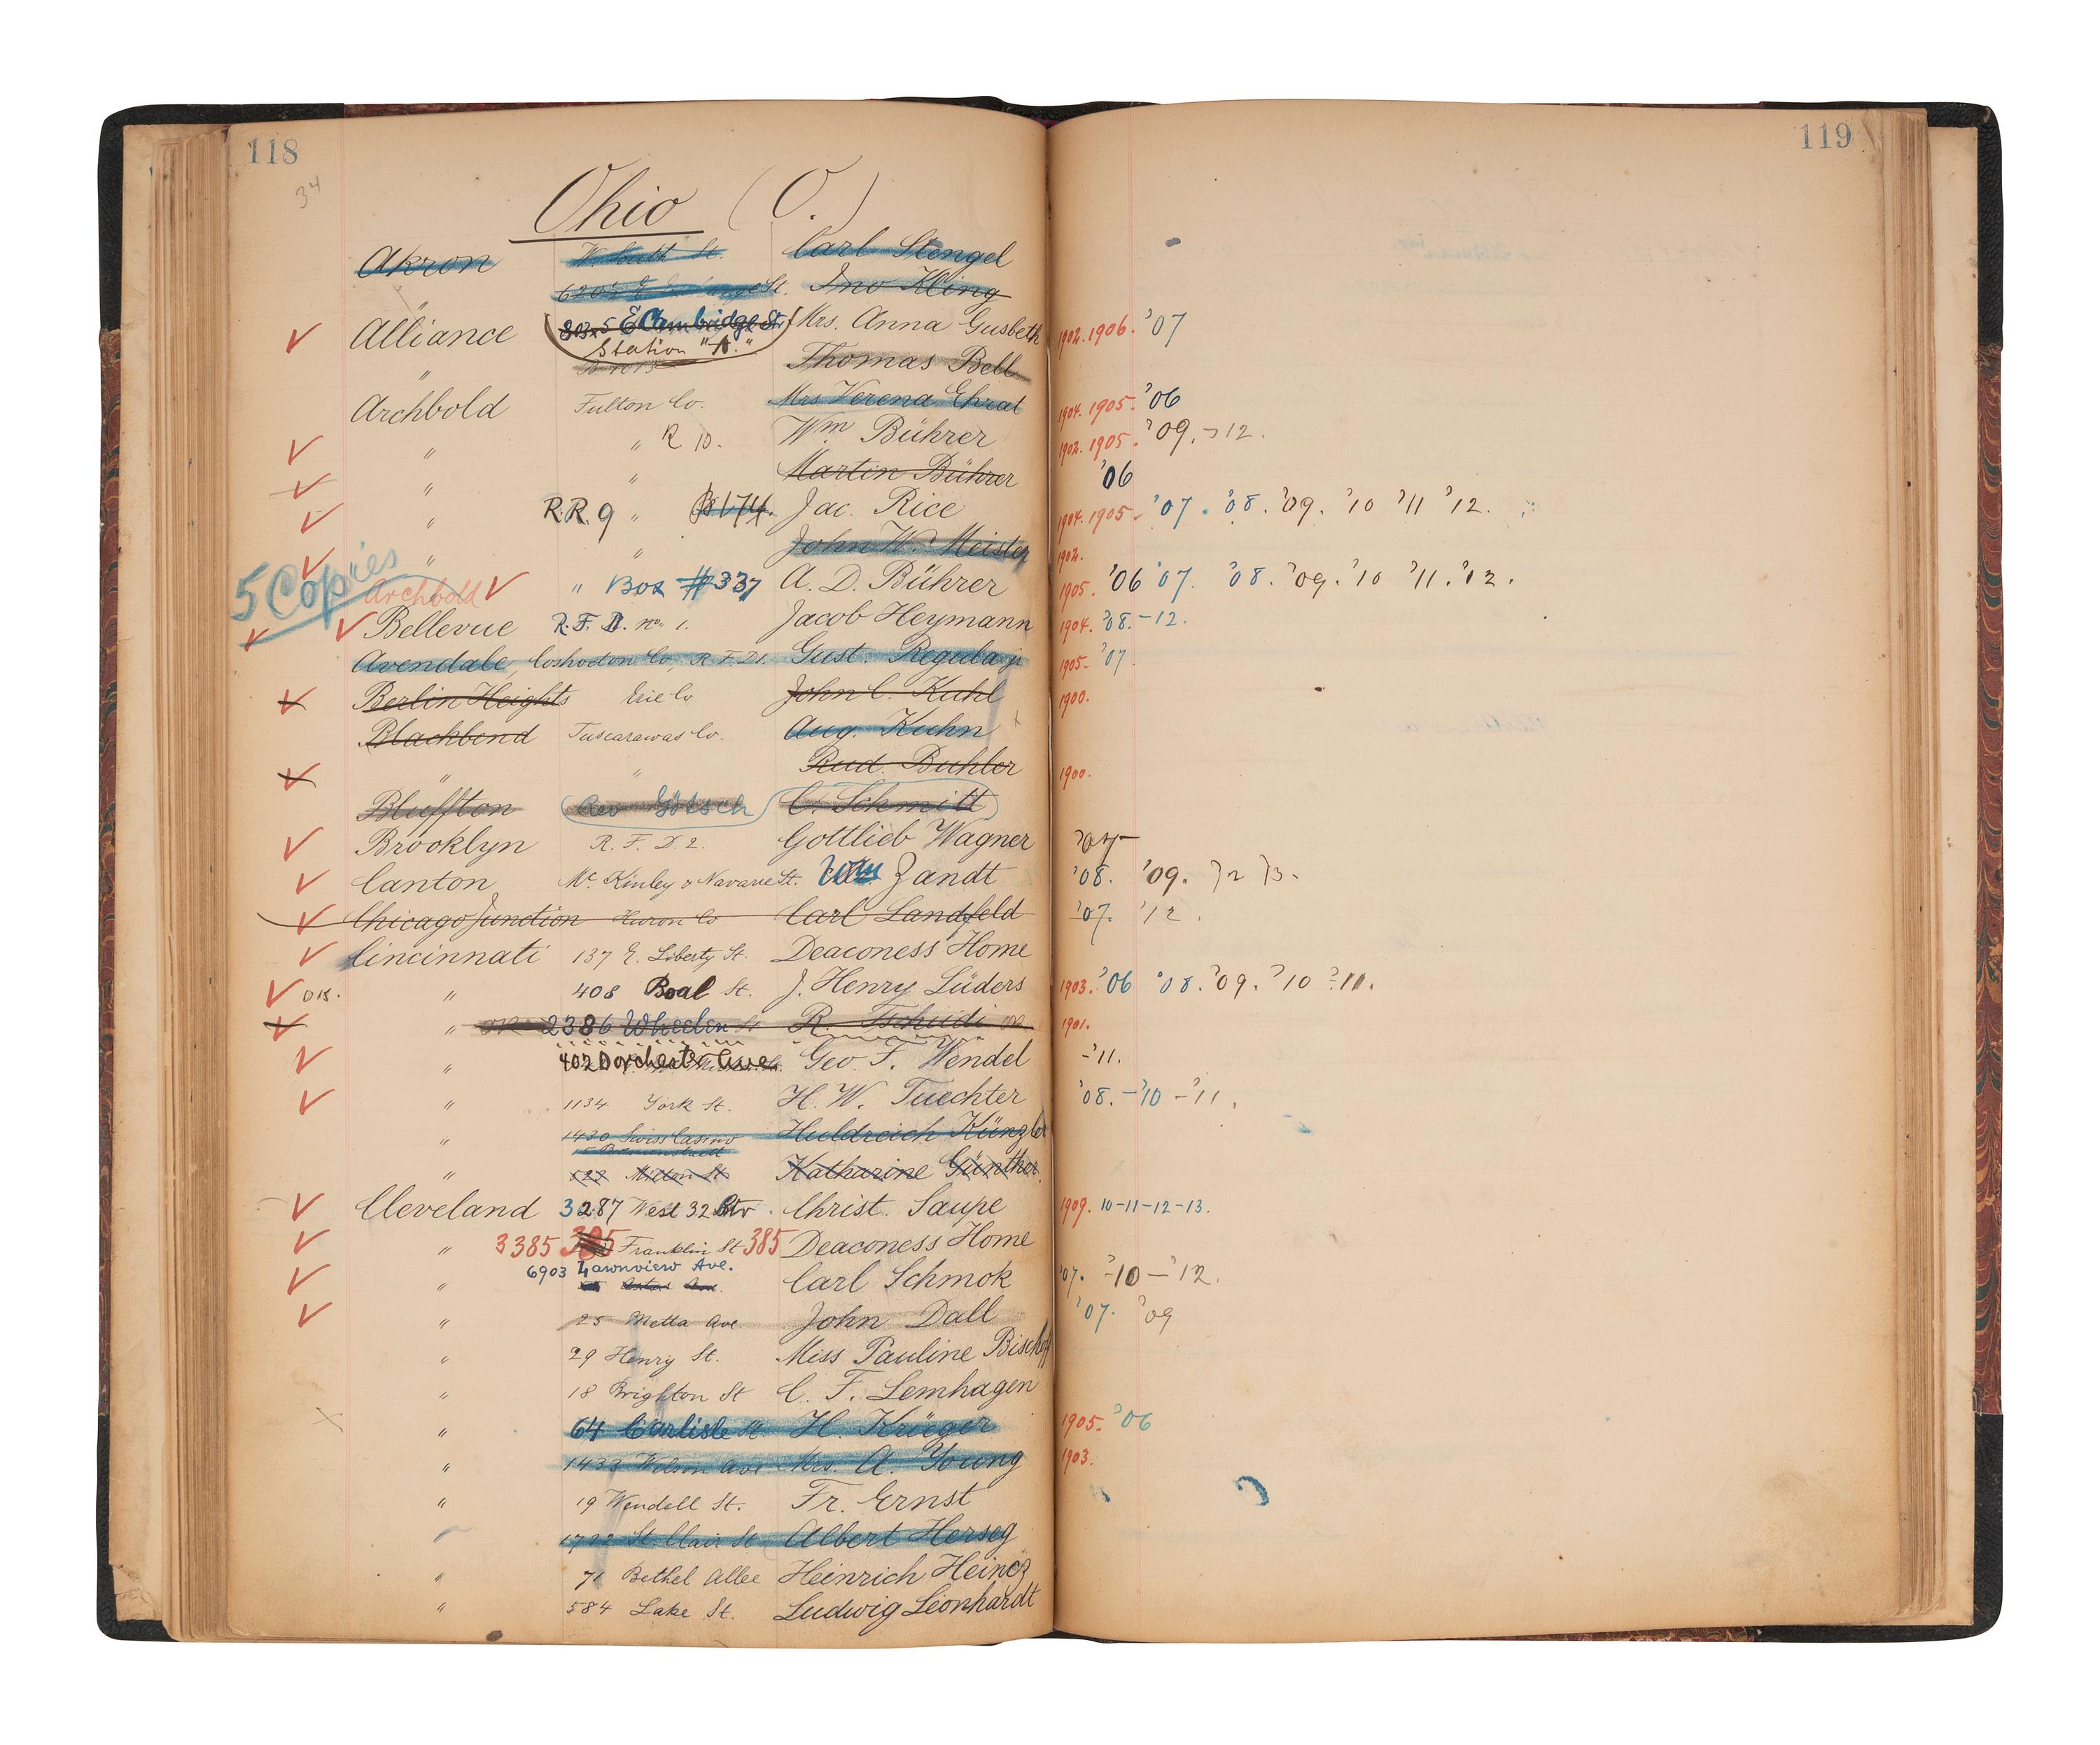 118
119
34
Ohio (O.)
Akron W. South St. Carl Stengel
St. Jno Kling
Alliance E Cambridge Str Mrs. Anna Gusbeth 1902. 1906. '07
Station "A."
" Thomas Bell
Archbold Fulton Co. Mrs Verena Ehrat 1904. 1905. '06
" " R 10. Wm Bührer 1902. 1905. '09. → 12.
" " Martin Bührer '06
" R.R. 9 " B 174. Jac. Rice 1904. 1905 - '07. '08. '09. '10 '11 '12.
" " John W. Meister 1902.
5 Copies Archbold " Box #337 A. D. Bührer 1905. '06 '07. '08. '09. '10 '11. '12.
Bellevue R. F. D. no. 1. Jacob Heymann 1904. '08. - 12.
Avendale, Coshocton Co, R F D 1. Gust. Regula jr 1905- '07
Berlin Heights Erie Co John C. Kuhl 1900.
Blackbend Tuscarawas Co. Aug. Kuhn
" " Rud. Buhler 1900.
Bluffton Rev Götsch C. Schmitt
Brooklyn R. F. D. 2. Gottlieb Wagner
Canton Mc Kinley & Navarre St. Zandt '08. '09.
Chicago Junction Huron Co Carl Landfeld '07. '12.
Cincinnati 137 E. Liberty St. Deaconess Home
OK. " 408 Boal St. J. Henry Lüders 1903. '06 '08. '09. '10 - '11.
" 2386 Wheeler St R. Tschudi 1901.
" 402 Dorchester Ave. Geo. F. Wendel - '11.
" 1134 York St. H. W. Tuechter '08. - '10 - '11.
" 1430 Swiss Casino Huldreich Künzler
" 523 Milton St Katharine Günther
Cleveland 3287 West 32 Str. Christ. Saupe 1909. 10-11-12-13.
" 3385 Franklin St 385 Deaconess Home
6903 Lawnview Ave.
" Carl Schmok '07. - '10 - '12.
" 25 Metta Ave John Dall '07. '09
" 29 Henry St. Miss Pauline Bischoff
" 18 Brighton St C. F. Lemhagen
" 64 Carlisle St. H. Krüger 1905- '06
" 1433 Wilson Ave Mrs. A. Young 1903.
" 19 Wendell St. Fr. Ernst
" 1722 St. Clair St. Albert Herseg
" 71 Bethel Allee Heinrich Heincz
" 584 Lake St. Ludwig Leonhardt